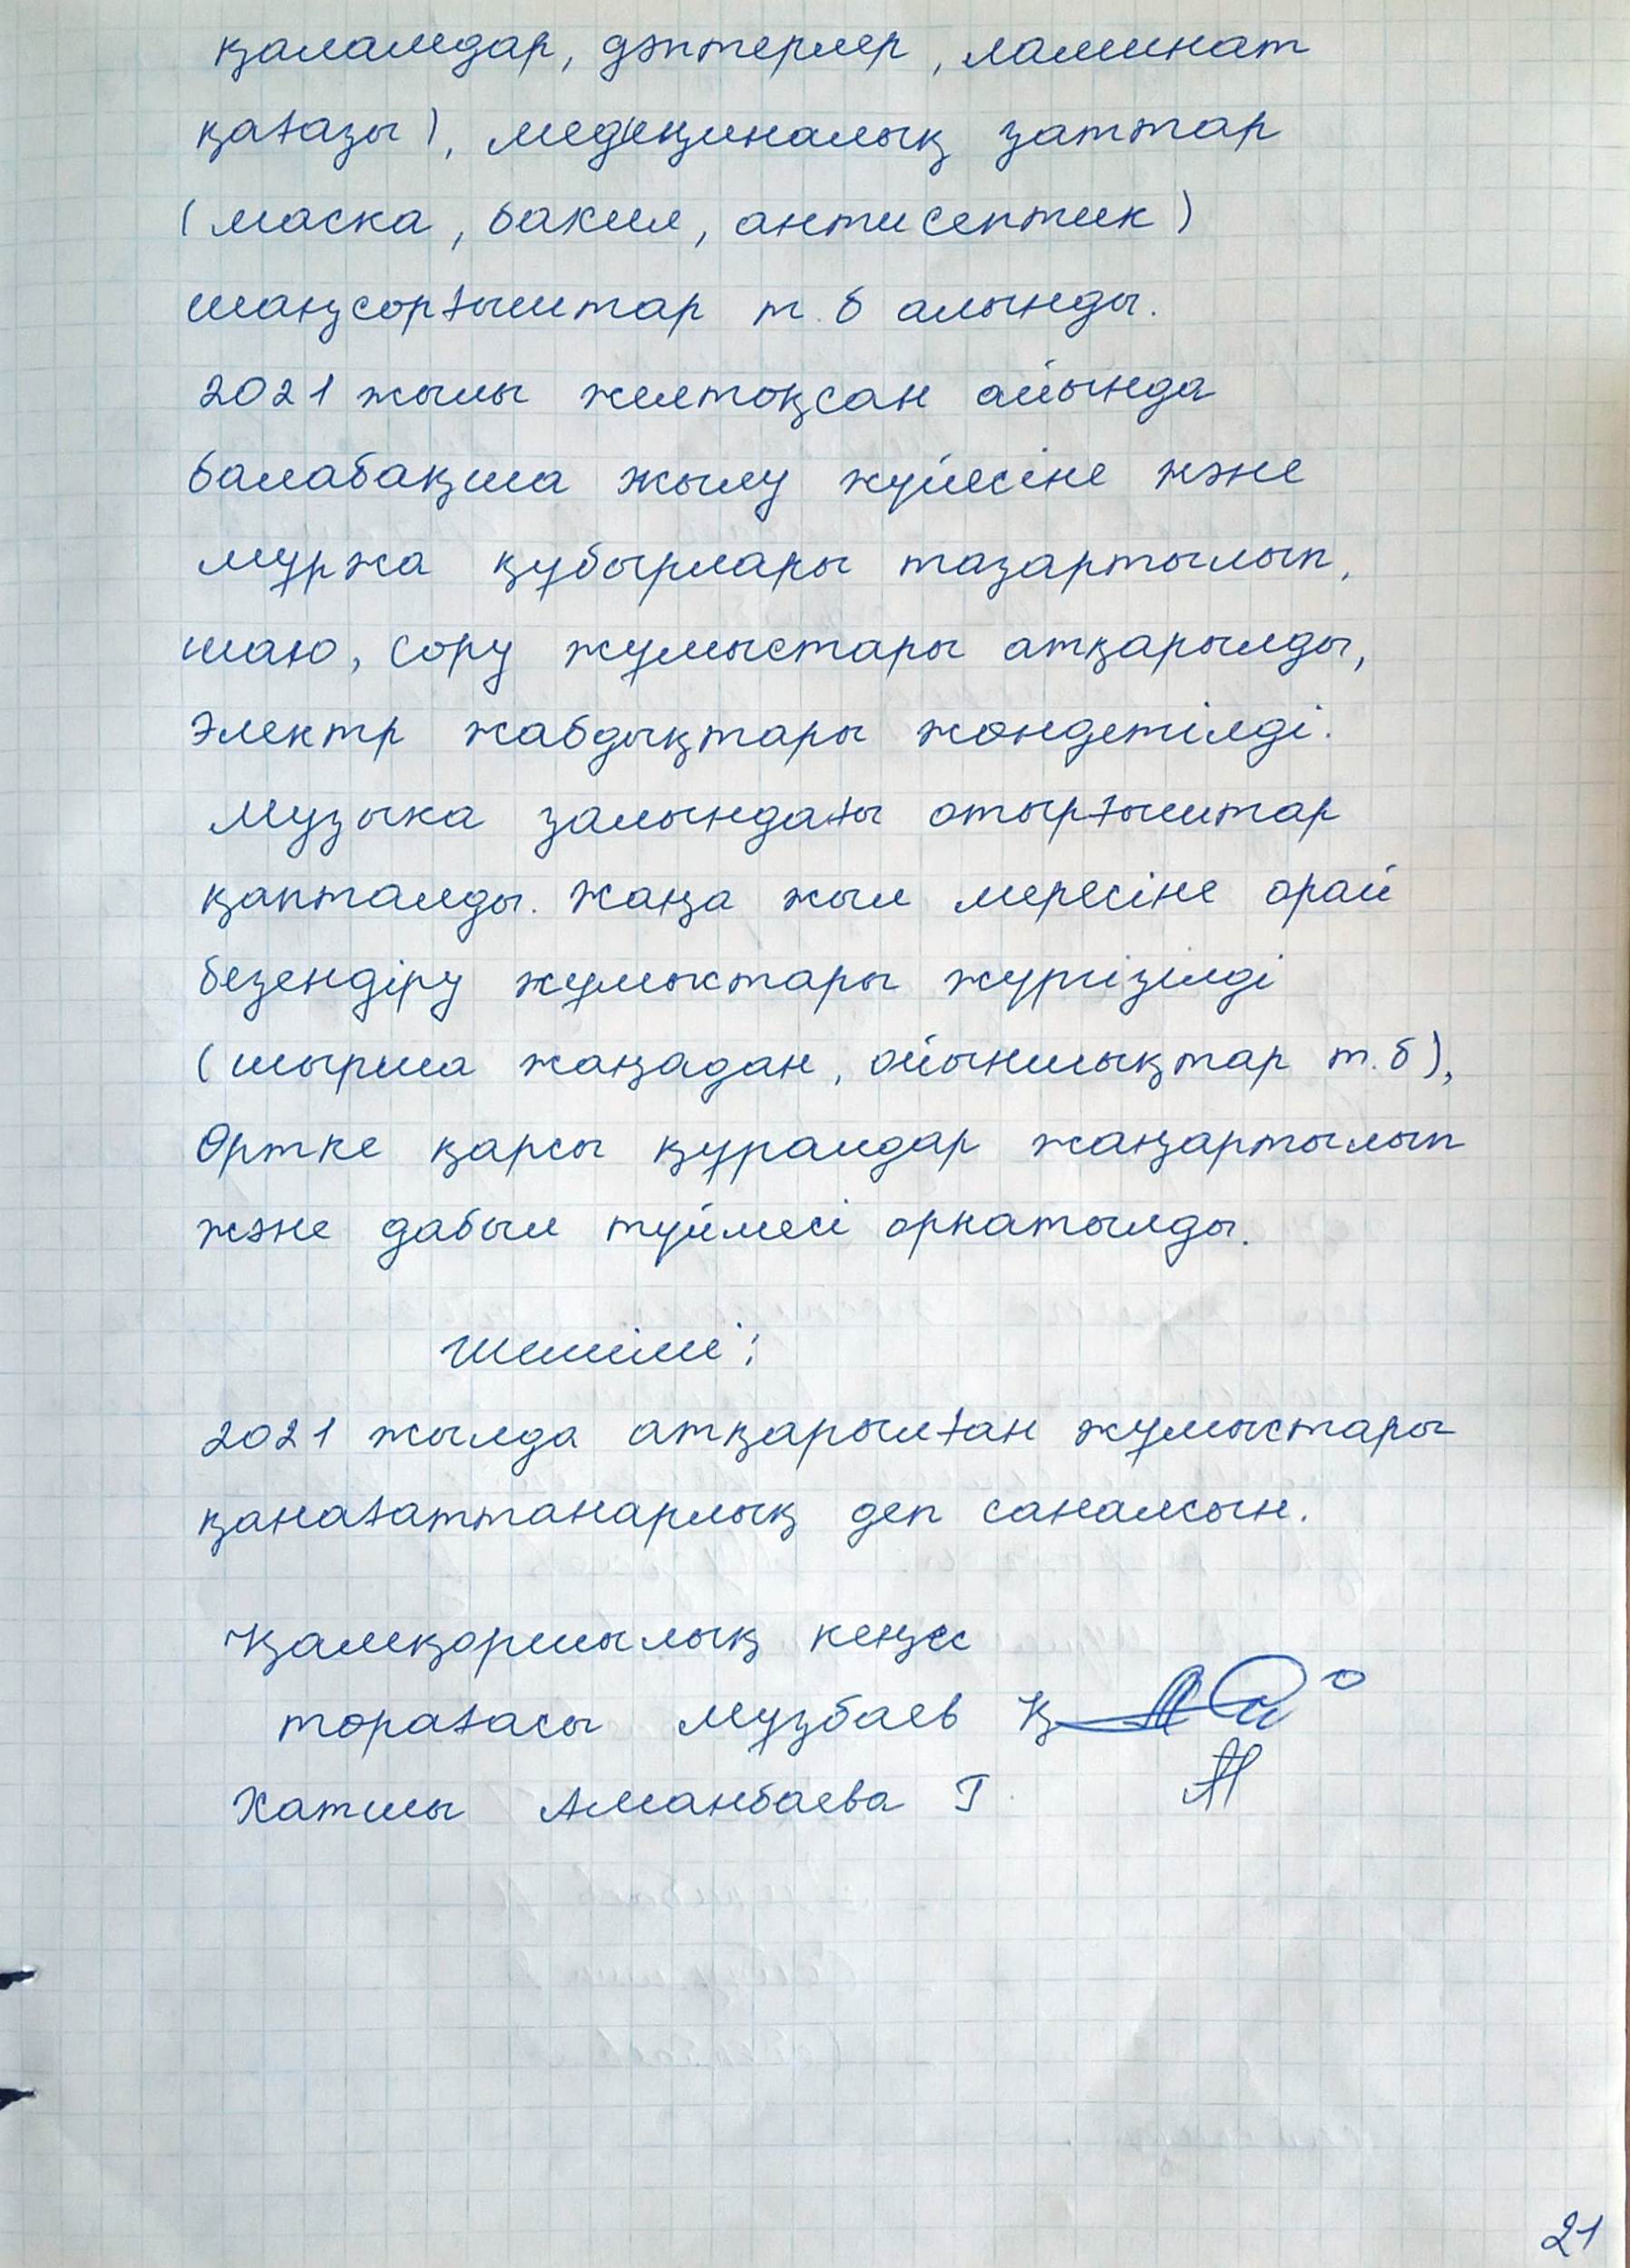 қаламдар, дәптерлер, ламинат
қағазы), медециналық заттар
(маска, бакил, антисептик)
шаңсорғыштар т.б алынды.
2021 жылы желтоқсан айында
балабақша жылу жүйесіне және
мұржа құбырлары тазартылып,
шаю, сору жұмыстары атқарылды,
электр жабдықтары жөндетілді.
Музыка залындағы отырғыштар
қапталды. Жаңа жыл мересіне орай
безендіру жұмыстары жүргізілді
(шырша жаңадан, ойыншықтар т.б),
Өртке қарсы құралдар жаңартылып
және дабыл түймесі орнатылды.
Шешімі:
2021 жылда атқарылған жұмыстары
қанағаттанарлық деп саналсын.
Қамқоршылық кеңес
төрағасы Мұзбаев Қ
Хатшы Аманбаева Г.
21